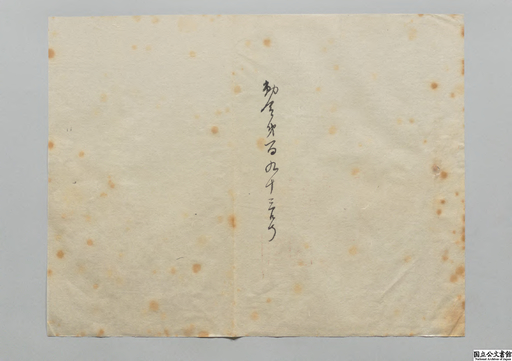 勅令第百九十三号
国立公文書館
National Archives of Japan